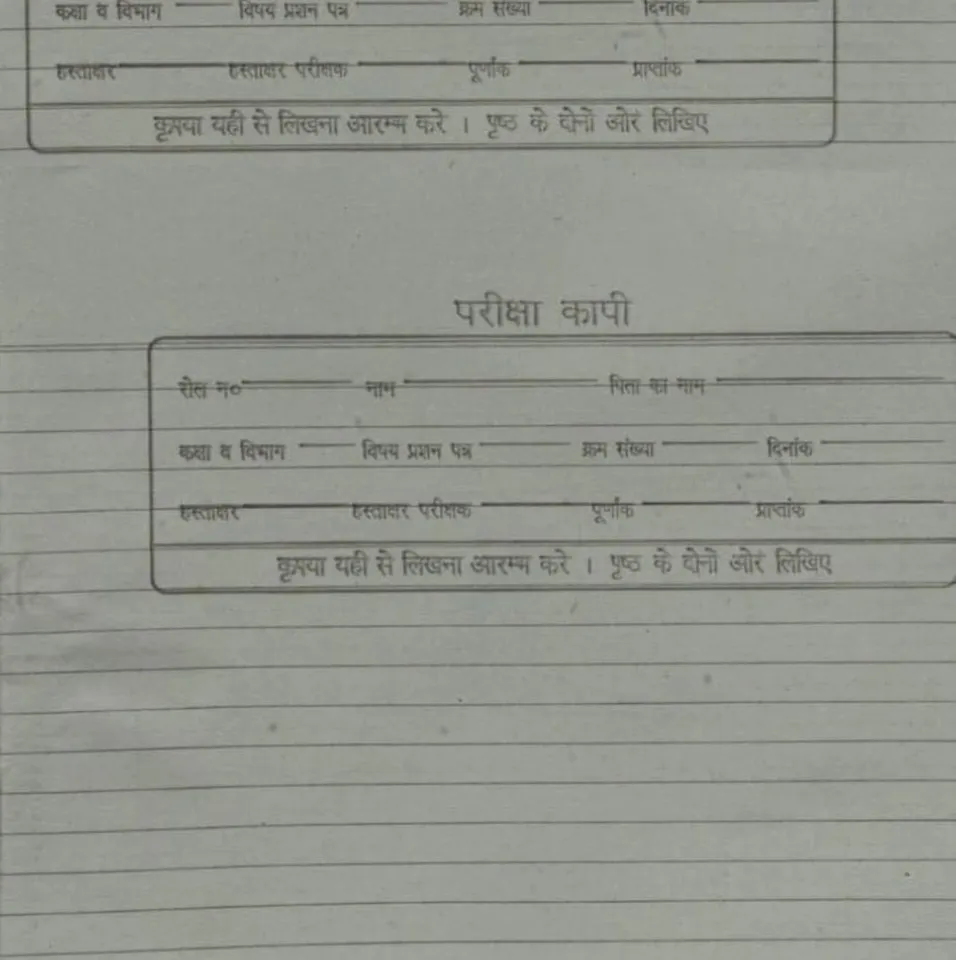 कक्षा व विभाग विषय प्रशन पत्र क्रम संख्या दिनांक
हस्ताक्षर हस्ताक्षर परीक्षक पूर्णांक प्राप्तांक
कृप्या यही से लिखना आरम्भ करे । पृष्ठ के दोनो ओर लिखिए
परीक्षा कापी
रोल न० नाम पिता का नाम
कक्षा व विभाग विषय प्रशन पत्र क्रम संख्या दिनांक
हस्ताक्षर हस्ताक्षर परीक्षक पूर्णांक प्राप्तांक
कृप्या यही से लिखना आरम्भ करे । पृष्ठ के दोनो ओर लिखिए